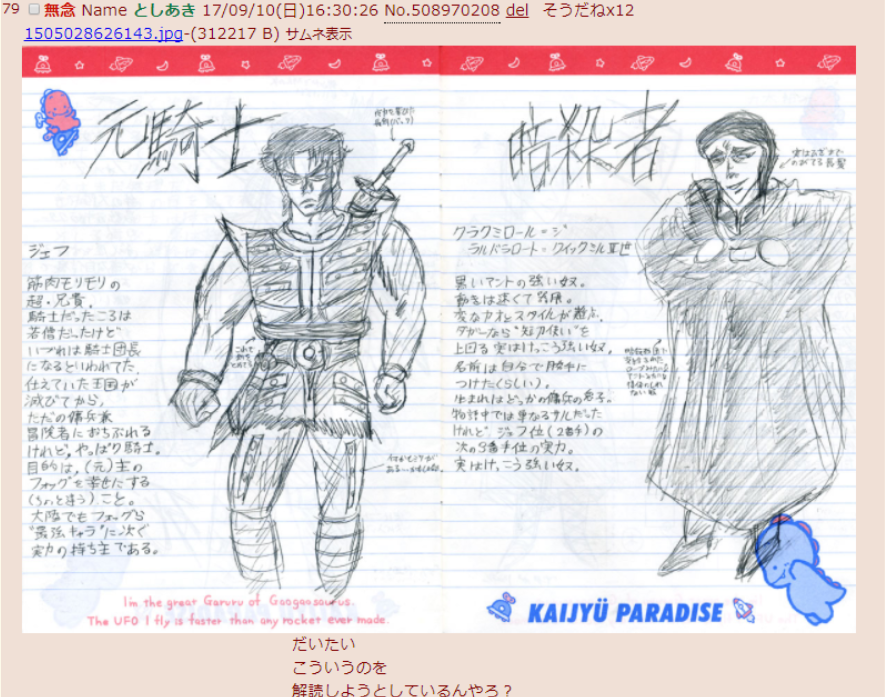 79 無念 Name としあき 17/09/10(日)16:30:26 No.508970208 del そうだねx12
1505028626143.jpg-(312217 B) サムネ表示
元騎士
ジェフ
筋肉モリモリの
超・兄貴。
騎士だったころは
若僧だったけど
いづれは騎士団長
になるといわれてた。
仕えていた王国が
滅びてから、
ただの傭兵兼
冒険者におちぶれる
けれど、やっぱり騎士。
目的は、(元)主の
フォッグを幸せにする
(ちょっと違う)こと。
大陸でもフォッグら
"最強キャラ"に次ぐ
実力の持ち主である。
I'm the great Garuru of Googaosaurus.
The UFO I fly is faster than any rocket ever made.
暗殺者
クラクミロール=ジ
ラルドラロート=クイックミルⅢ世
黒いマントの強い奴。
動きは速くて
変なカオとスタイルが
ダガーなら"短刀使い"を
上回る実はけっこう強い奴。
名前は自分で勝手に
つけた(らしい)。
生まれはどっかの傭兵の息子。
物語中では単なるサルだった
けれどジェフ位(2番手)の
次の3番手位の実力。
実はけっこう強い奴。
KAIJYŪ PARADISE
だいたい
こういうのを
解読しようとしているんやろ？